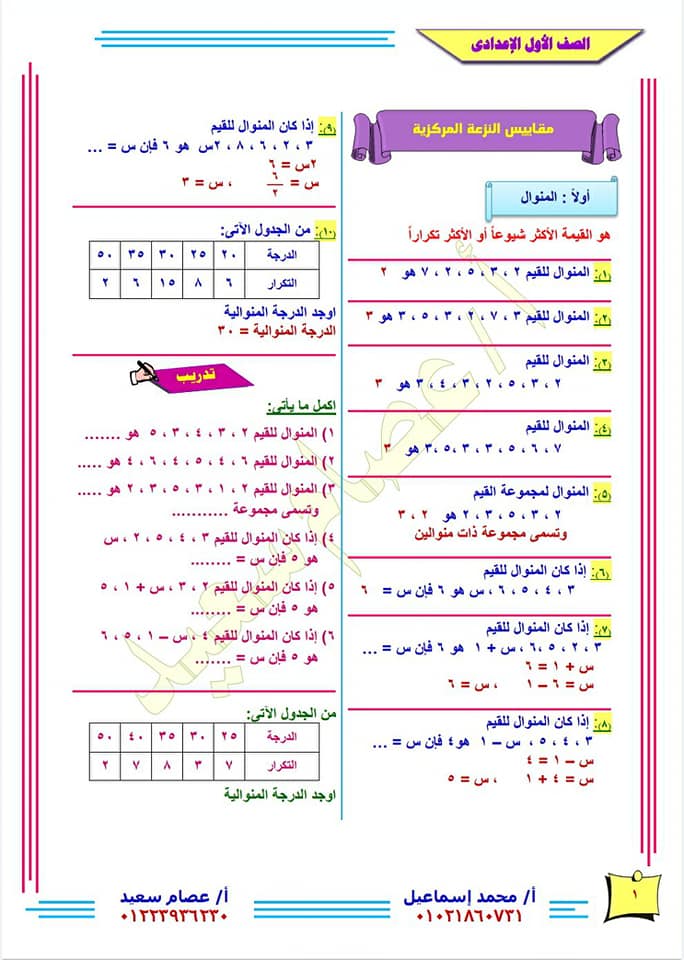 الصف الأول الإعدادى
مقاييس النزعة المركزية
أولاً : المنوال
هو القيمة الأكثر شيوعاً أو الأكثر تكراراً
(١): المنوال للقيم ٢ ، ٣ ، ٥ ، ٢ ، ٧ هو ٢
(٢): المنوال للقيم ٣ ، ٧ ، ٢ ، ٣ ، ٥ ، ٣ هو ٣
(٣): المنوال للقيم
٢ ، ٣ ، ٥ ، ٢ ، ٣ ، ٤ ، ٣ هو ٣
(٤): المنوال للقيم
٧ ، ٦ ، ٥ ، ٣ ، ٣ ، ٥ ، ٣ هو ٣
(٥): المنوال لمجموعة القيم
٢ ، ٣ ، ٥ ، ٣ ، ٢ هو ٢ ، ٣
وتسمى مجموعة ذات منوالين
(٦): إذا كان المنوال للقيم
٣ ، ٤ ، ٥ ، ٦ ، س هو ٦ فإن س = ٦
(٧): إذا كان المنوال للقيم
٣ ، ٢ ، ٥ ، ٦ ، س + ١ هو ٦ فإن س = ...
س + ١ = ٦
س = ٦ – ١ ، س = ٦
(٨): إذا كان المنوال للقيم
٣ ، ٤ ، ٥ ، س – ١ هو٤ فإن س = ...
س – ١ = ٤
س = ٤ + ١ ، س = ٥
(٩): إذا كان المنوال للقيم
٣ ، ٢ ، ٦ ، ٨ ، ٢س هو ٦ فإن س = ...
٢س = ٦
س = ٦/٢ ، س = ٣
(١٠): من الجدول الآتى:
الدرجة ٢٠ ٢٥ ٣٠ ٣٥ ٥٠
التكرار ٦ ٨ ١٥ ٦ ٢
اوجد الدرجة المنوالية
الدرجة المنوالية = ٣٠
تدريب
اكمل ما يأتى:
١) المنوال للقيم ٢ ، ٣ ، ٤ ، ٣ ، ٥ هو .......
٢) المنوال للقيم ٦ ، ٤ ، ٥ ، ٤ ، ٦ ، ٤ هو .....
٣) المنوال للقيم ٢ ، ١ ، ٣ ، ٥ ، ٣ ، ٢ هو .....
وتسمى مجموعة ...........
٤) إذا كان المنوال للقيم ٣ ، ٤ ، ٥ ، ٢ ، س
هو ٥ فإن س = ........
٥) إذا كان المنوال للقيم ٢ ، ٣ ، س + ١ ، ٥
هو ٥ فإن س = ........
٦) إذا كان المنوال للقيم ٤ ، س – ١ ، ٥ ، ٦
هو ٥ فإن س = .......
من الجدول الآتى:
الدرجة ٢٥ ٣٠ ٣٥ ٤٠ ٥٠
التكرار ٧ ٣ ٨ ٧ ٢
اوجد الدرجة المنوالية
أ / عصام سعيد
١
أ/ محمد إسماعيل
٠١٠٢١٨٦٠٧٣١
أ/ عصام سعيد
٠١٢٢٣٩٣٦٢٣٠